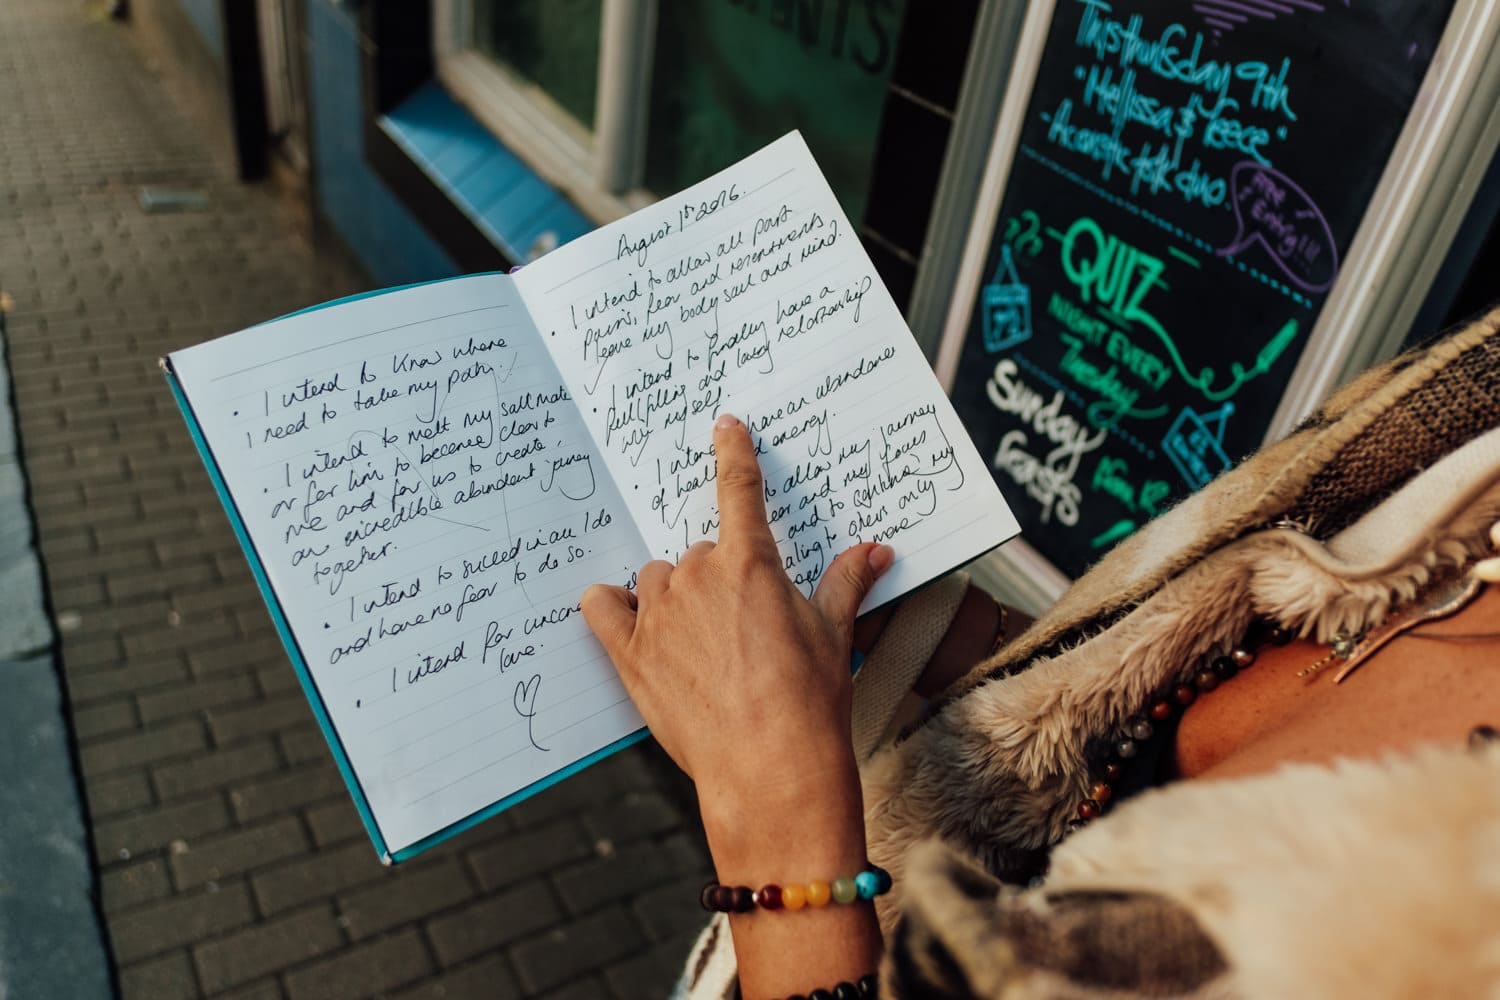 · I intend to know where
I need to take my path.
· I intend to melt my
or for him to become clear to
me and for us to create
an incredible abundant journey
together.
· I intend to succeed in all I do
and have no fear to do so.
· I intend for
love.
August 1st 2016.
· I intend to allow all past
pains, fear and resentments
leave my body soul and mind.
· I intend to finally have a
fullfilling and loving relationship
with myself.
· I have an abundance
of energy.
to allow my journey
and my focus
and to continue my
to others only
more
This thursday 9th
"Mellissa & Reece"
-Acoustic folk duo.
Free
Entry!!!
???
QUIZ
NIGHT EVERY
Tuesday
Sunday
Roasts